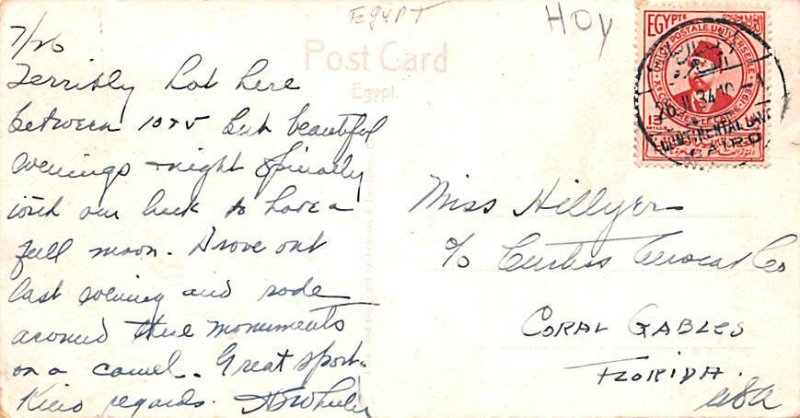 EGYPT
HOY
7/26
Post Card
Egypt.
Terribly hot here
between 10 + 5 but beautiful
evenings + night. Specially
with our luck to have a
full moon. Drove out
last evening and rode
around these monuments
on a camel. Great sport.
Kind regards.
EGYPTE
UNION POSTALE UNIVERSELLE
13
34 10
CONTINENTAL
CAIRO
Miss Hillyer
c/o Curtiss Co
CORAL GABLES
FLORIDA.
USA